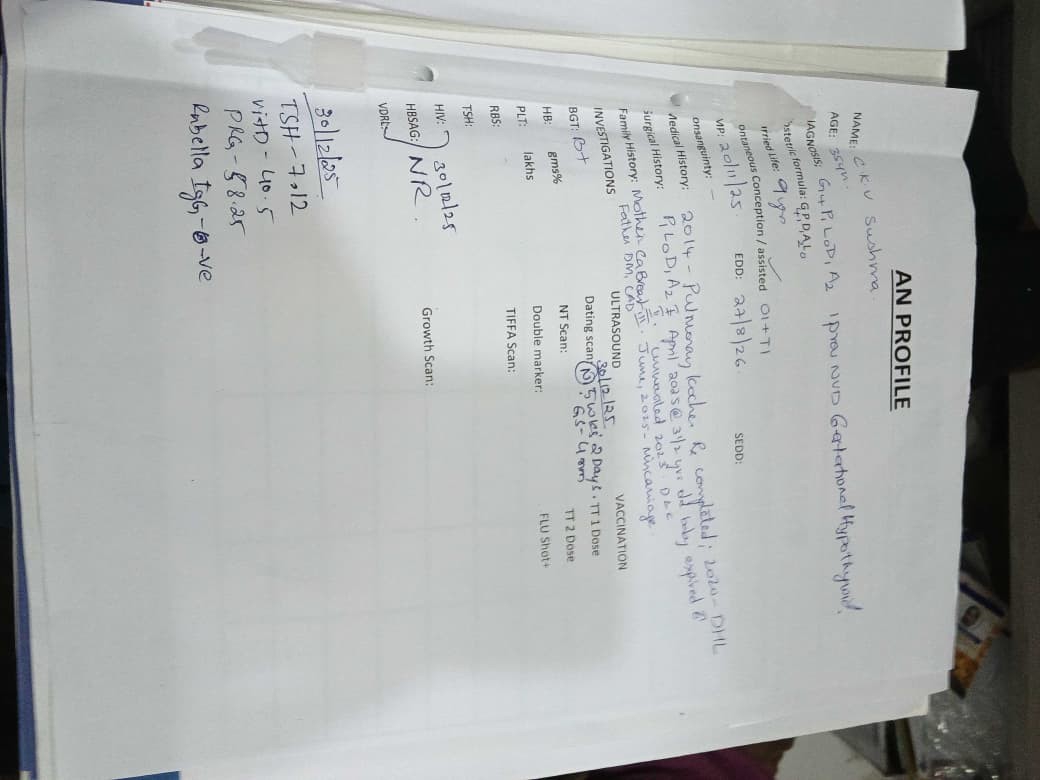 AN PROFILE
NAME: C.K.V Sushma.
AGE: 35yrs.
IAGNOSIS: G4 P1 L0 D1 A2 1 prev NVD Gestational Hypothyroid.
ostetric formula: G P D A L
4 1 1 2 0
rried Life: 9 yrs
ontaneous Conception / assisted ✓ OI+TI
MP: 20/11/25. EDD: 27/8/26. SEDD:
onsanguinty: -
Medical History: 2014 - Pulmonary Koch's Rx completed; 2020 - DHL
Surgical History: P1 L0 D1 A2 I April 2025 @ 3 1/2 yrs old baby expired
II. 2023. D&C
Family History: Mother Ca Breast III. June, 2025 - Miscarriage
Father DM, CAD
INVESTIGATIONS ULTRASOUND VACCINATION
30/12/25
BGT: B+ Dating scan: N 5 wks 2 Days. TT 1 Dose
GS - 4 mm
HB: gms% NT Scan: TT 2 Dose
PLT: lakhs Double marker: FLU Shot+
RBS: TIFFA Scan:
TSH:
HIV: 30/12/25
HBSAG: NR. Growth Scan:
VDRL
30/12/25
TSH - 7.12
Vit D - 40.5
PRG - 58.25
Rubella IgG - -ve